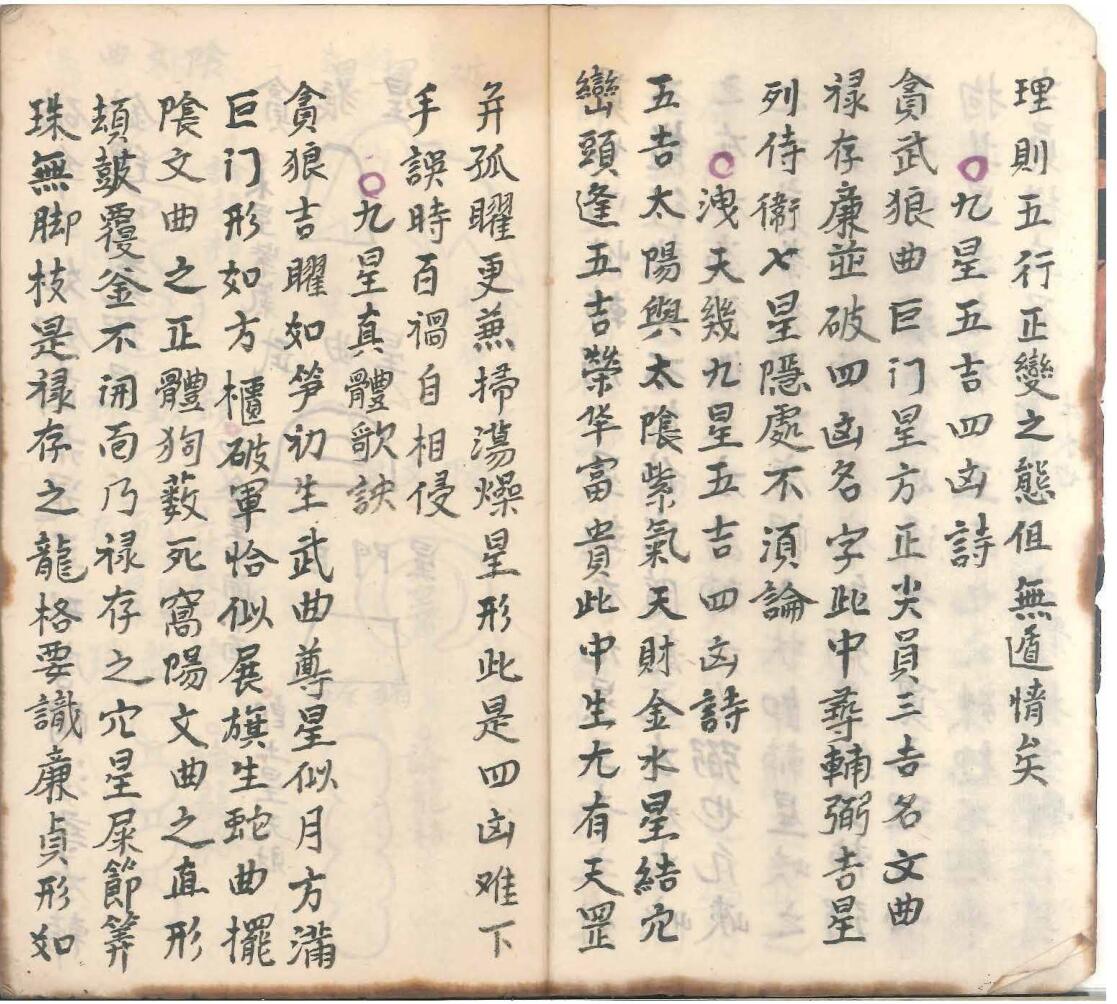 理則五行正變之態俱無遁情矣
〇九星五吉四凶詩
貪武狼曲巨门星方正尖員三吉名文曲
禄存廉並破四凶名字此中尋輔弼吉星
列侍衛七星隱處不須論
〇洩天幾九星五吉四凶詩
五吉太陽與太陰紫氣天財金水星結穴
巒頭逢五吉榮华富貴此中生尢有天罡
并孤曜更蕪掃蕩燥星形此是四凶难下
手誤時百禍自相侵
〇九星真體歌訣
貪狼吉曜如笋初生武曲尊星似月方滿
巨门形如方櫃破軍恰似展旗生蛇曲擺
陰文曲之正體狗薮死窩陽文曲之直形
頓皷覆釜不開面乃禄存之穴星屎節筭
珠無脚枝是禄存之龍格要識廉貞形如